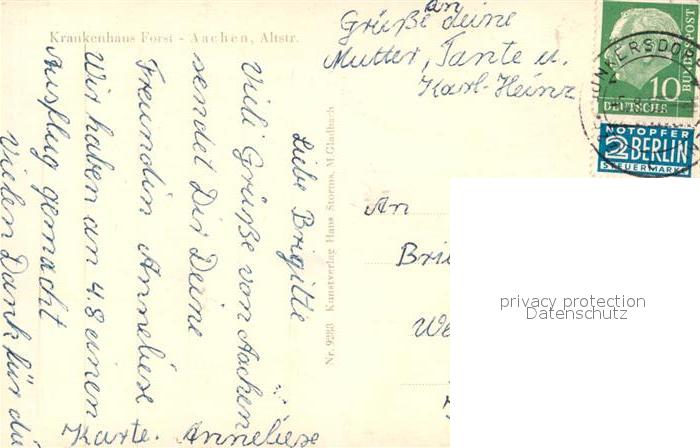 Krankenhaus Forst - Aachen, Altstr.
Grüße an deine
Mutter, Tante u.
Karl-Heinz
Liebe Brigitte
Viele Grüße von Aachen
sendet Dir Deine
Freundin Anneliese
Wir haben an 4.8 einen
Ausflug gemacht
Vielen Dank für di
Karte. Anneliese
Nr. 9283 Kunstverlag Hans Storms, M.Gladbach
An
Bri
We
10
DEUTSCHE
BUNDESPOST
NOTOPFER
2 BERLIN
STEUERMARKE
privacy protection
Datenschutz